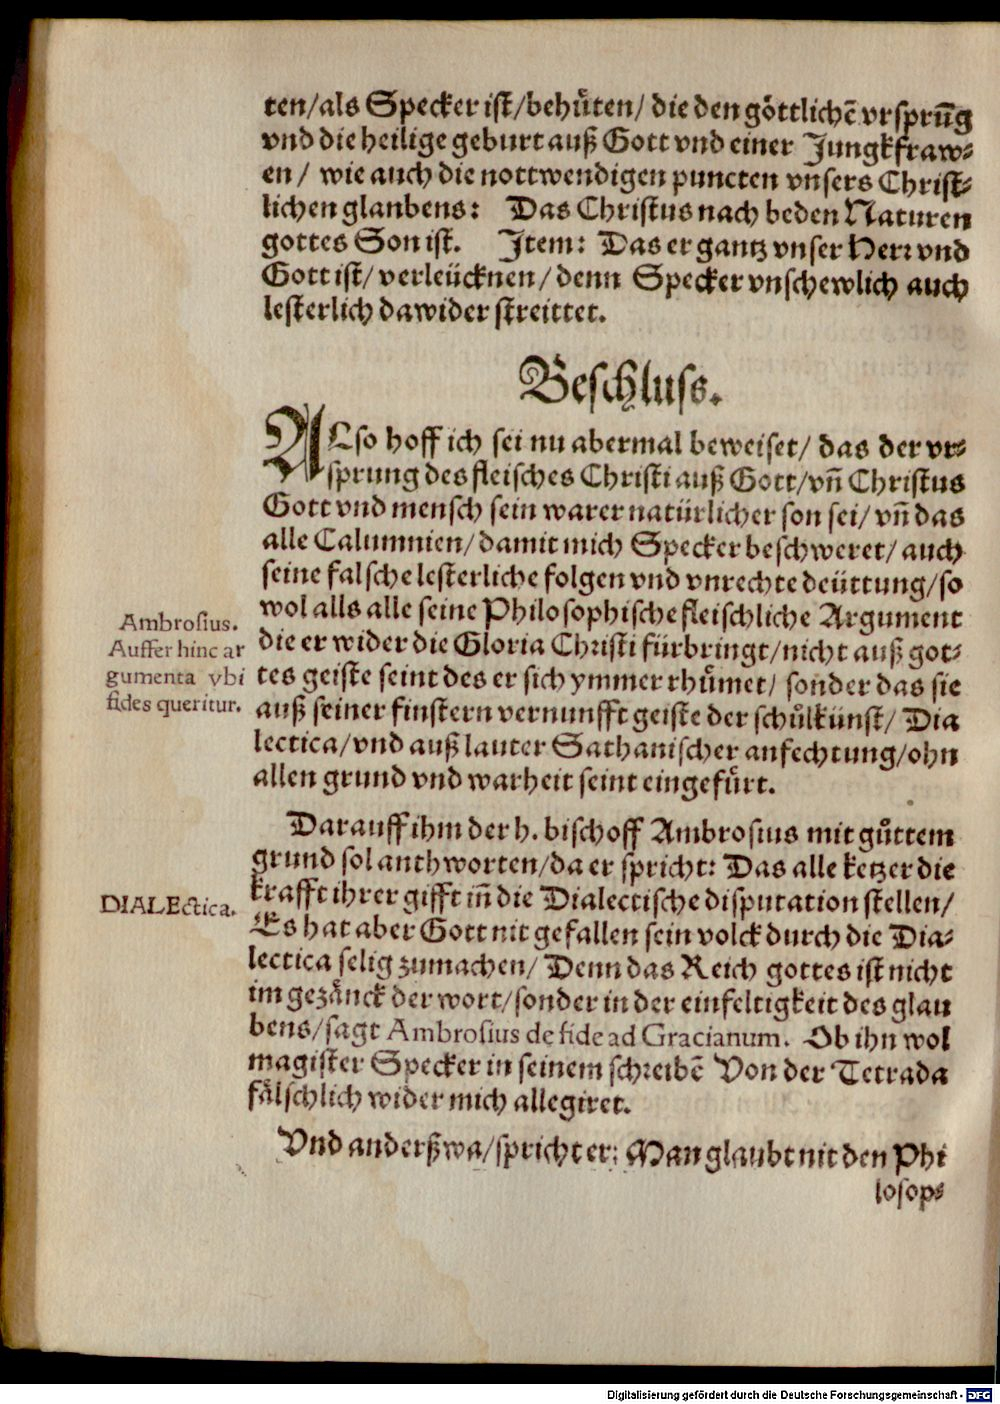 ten/als Specker ist/behuͤten/ die den goͤttlichẽ vrsprũg
vnd die heilige geburt auß Gott vnd einer Jungkfraw-
en/ wie auch die nottwendigen puncten vnsers Christ-
lichen glanbens: Das Christus nach beden Naturen
gottes Son ist. Item: Das er gantz vnser Herr vnd
Gott ist/ verleücknen/ denn Specker vnschewlich auch
lesterlich dawider streittet.
Beschluss.
ALso hoff ich sei nu abermal beweiset/ das der vr-
sprung des fleisches Christi auß Gott/ vñ Christus
Gott vnd mensch sein warer natürlicher son sei/ vñ das
alle Calumnien/ damit mich Specker beschweret/ auch
seine falsche lesterliche folgen vnd vnrechte deüttung/ so
wol alls alle seine Philosophische fleischliche Argument
Ambrosius.
Auffer hinc ar
gumenta vbi
fides queritur.
die er wider die Gloria Christi fürbringt/ nicht auß got-
tes geiste seint des er sich ymmer rhuͤmet/ sonder das sie
auß seiner finstern vernunfft geiste der schuͦlkünst/ Dia
lectica/ vnd auß lauter Sathanischer anfechtung/ ohn
allen grund vnd warheit seint eingefuͤrt.
Darauff ihm der h. bischoff Ambrosius mit guͦttem
grund sol anthworten/ da er spricht: Das alle ketzer die
DIALEctica.
krafft ihrer gifft iñ die Dialectische disputation stellen/
Es hat aber Gott nit gefallen sein volck durch die Dia-
lectica selig zumachen/ Denn das Reich gottes ist nicht
im gezaͤnck der wort/ sonder in der einfeltigkeit des glau
bens/ sagt Ambrosius de fide ad Gracianum. Ob ihn wol
magister Specker in seinem schreibẽ Von der Tetrada
faͤlschlich wider mich allegiret.
Vnd anderßwa/ spricht er: Man glaubt nit den Phi
losop-
Digitalisierung gefördert durch die Deutsche Forschungsgemeinschaft - DFG